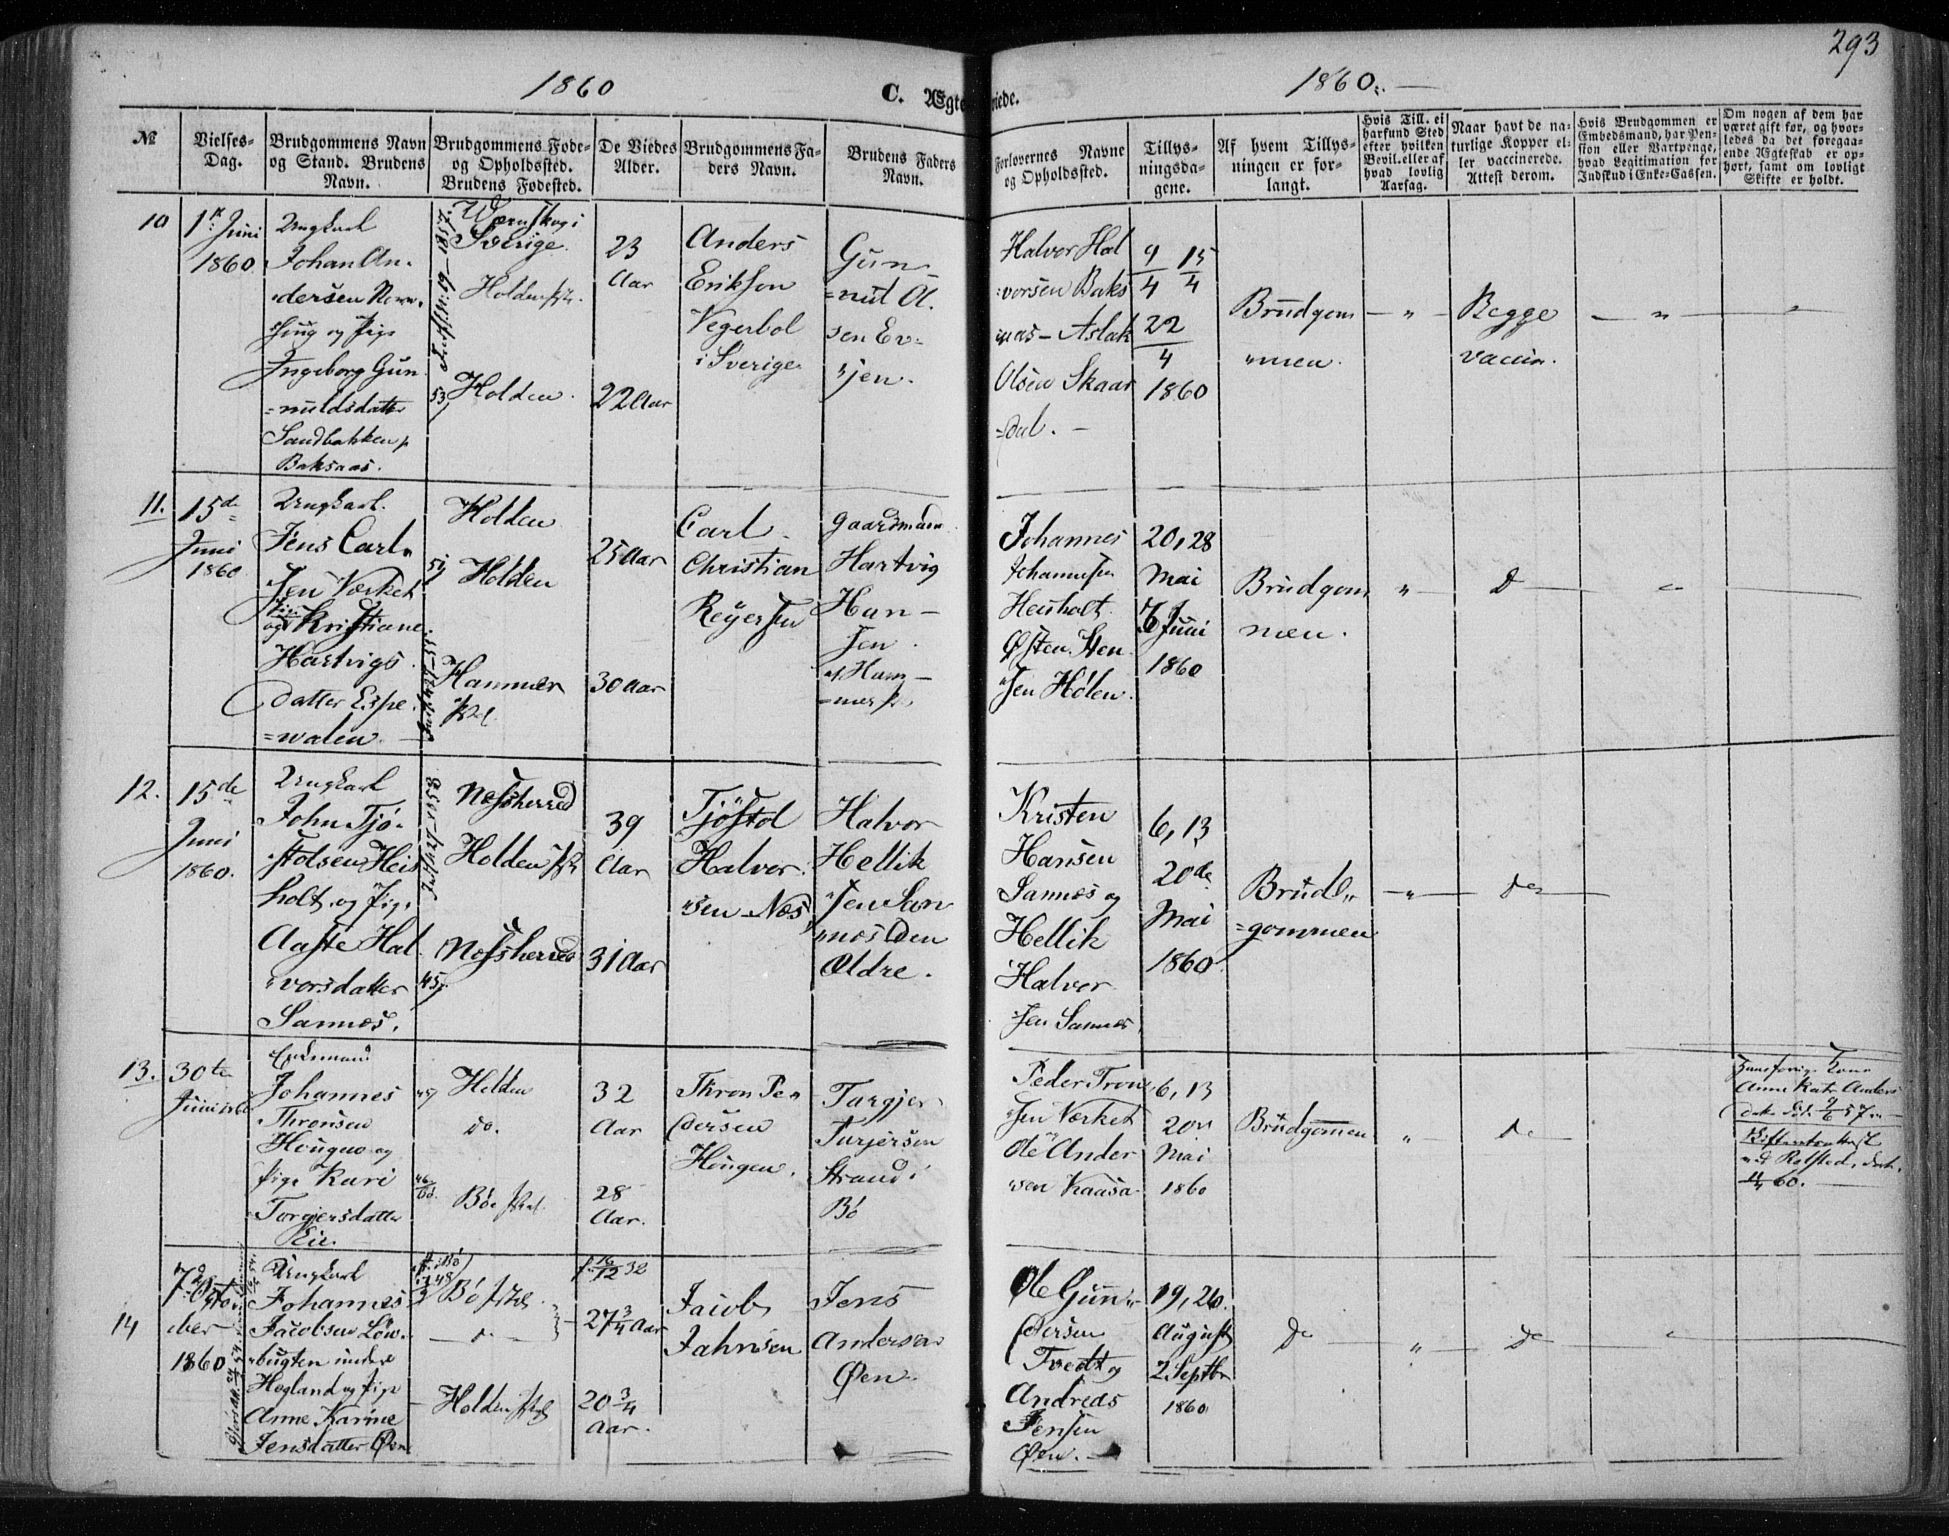 293
1860
C. Ægte
viede.
1860.
№
Vielses-
Dag.
Brudgommens Navn
og Stand. Brudens
Navn.
Brudgommens Føde-
og Opholdssted.
Brudens Fødested.
De Viedes
Alder.
Brudgommens Fa-
ders Navn.
Brudens Faders
Navn.
Forlovernes Navne
og Opholdssted.
Tillys-
ningsda-
gene.
Af hvem Tillys-
ningen er for-
langt.
Hvis Till. ei
har fund Sted
efter hvilken
Bevil. eller af
hvad lovlig
Aarsag.
Naar havt de na-
turlige Kopper el-
ler vaccinerede.
Attest derom.
Hvis Brudgommen er
Embedsmand, har Pen-
sion eller Vartpenge,
hvad Legitimation for
Indskud i Enke-Cassen.
Om nogen af dem har
været gift før, og hvor-
ledes da det foregaa-
ende Ægteskab er op-
hørt, samt om lovligt
Skifte er holdt.
10
Juni
1860
Ungkarl
Johan An-
dersen
og Pige
Ingeborg Gun-
=nuldsdatter
Sandbakken
Baksaas.
i
Sverige.
Holden
Holden
23
Aar
22 Aar
Anders
Eriksen
Vegerbol
i Sverige
Gun-
=nul Ol
sen Ev-
jen.
Halvor Hal
vorsen Baks
aas - Aslak
Olsen Skaar
=dal. -
9 15
4 4
22
4
1860
Brudgom
men.
- " -
Begge
vaccin.
- " -
11.
15de
Juni
1860
Ungkarl.
Jens Carl
sen Værket
og Kristiane
Hartvigs
datter Espe
=walen
Holden
Holden
Hammer
25 Aar
30 Aar
Carl
Christian
Reyersen
Gaardmand
Hartvig
Han-
sen
Ham-
=mer
Johannes
Johannesen
Heisholt
Østen Sten
sen Holen.
20, 28
Mai
Juni
1860
Brudgom
men.
"
Do
12.
15de
Juni
1860.
Ungkarl
John Tjø-
stolsen Heis
holt og Pige
Aaste Hal
vorsdatter
Sannes.
Næssherred
Holden
Næssherred
39
Aar
31 Aar
Tjøstol
Halvor
sen Næs
Halvor
Hellik
sen San
næs den
Ældre.
Kristen
Hansen
Sannæs og
Hellik
Halvor
sen Sannæs
6, 13
20de
Mai
1860
Brud-
=gommen
- " -
Do
13.
30te
Juni 1860
Enkemand
Johannes
Thronsen
Hougen og
Pige Kari
Torgjersdatter
Eie.
Holden
do.
Bø
32
Aar
28
Aar.
Thron Pe-
dersen
Hougen.
Torgjer
Turjersen
Strand i
Bø
Peder Tron
sen Værket
Ole Ander
sen Kaasa
6, 13
20
Mai
1860
Brudgommen
"
Do
Anne Kat. Anders
60.
14
Octo
ber
1860
Ungkarl
Johannes
Jacobsen Løw-
bugten
Hogland og Pige
Anne Karine
Jensdatter Øen
Bø
Holden
27 3/4 Aar
20 3/4
Aar.
Jacob
Jahnsen
Jens
Andersen
Øen.
Ole Gun-
dersen
Tvedt og
Andreas
Jensen
Øen.
19, 26.
August
2 Septbr
1860
Do
"
Do